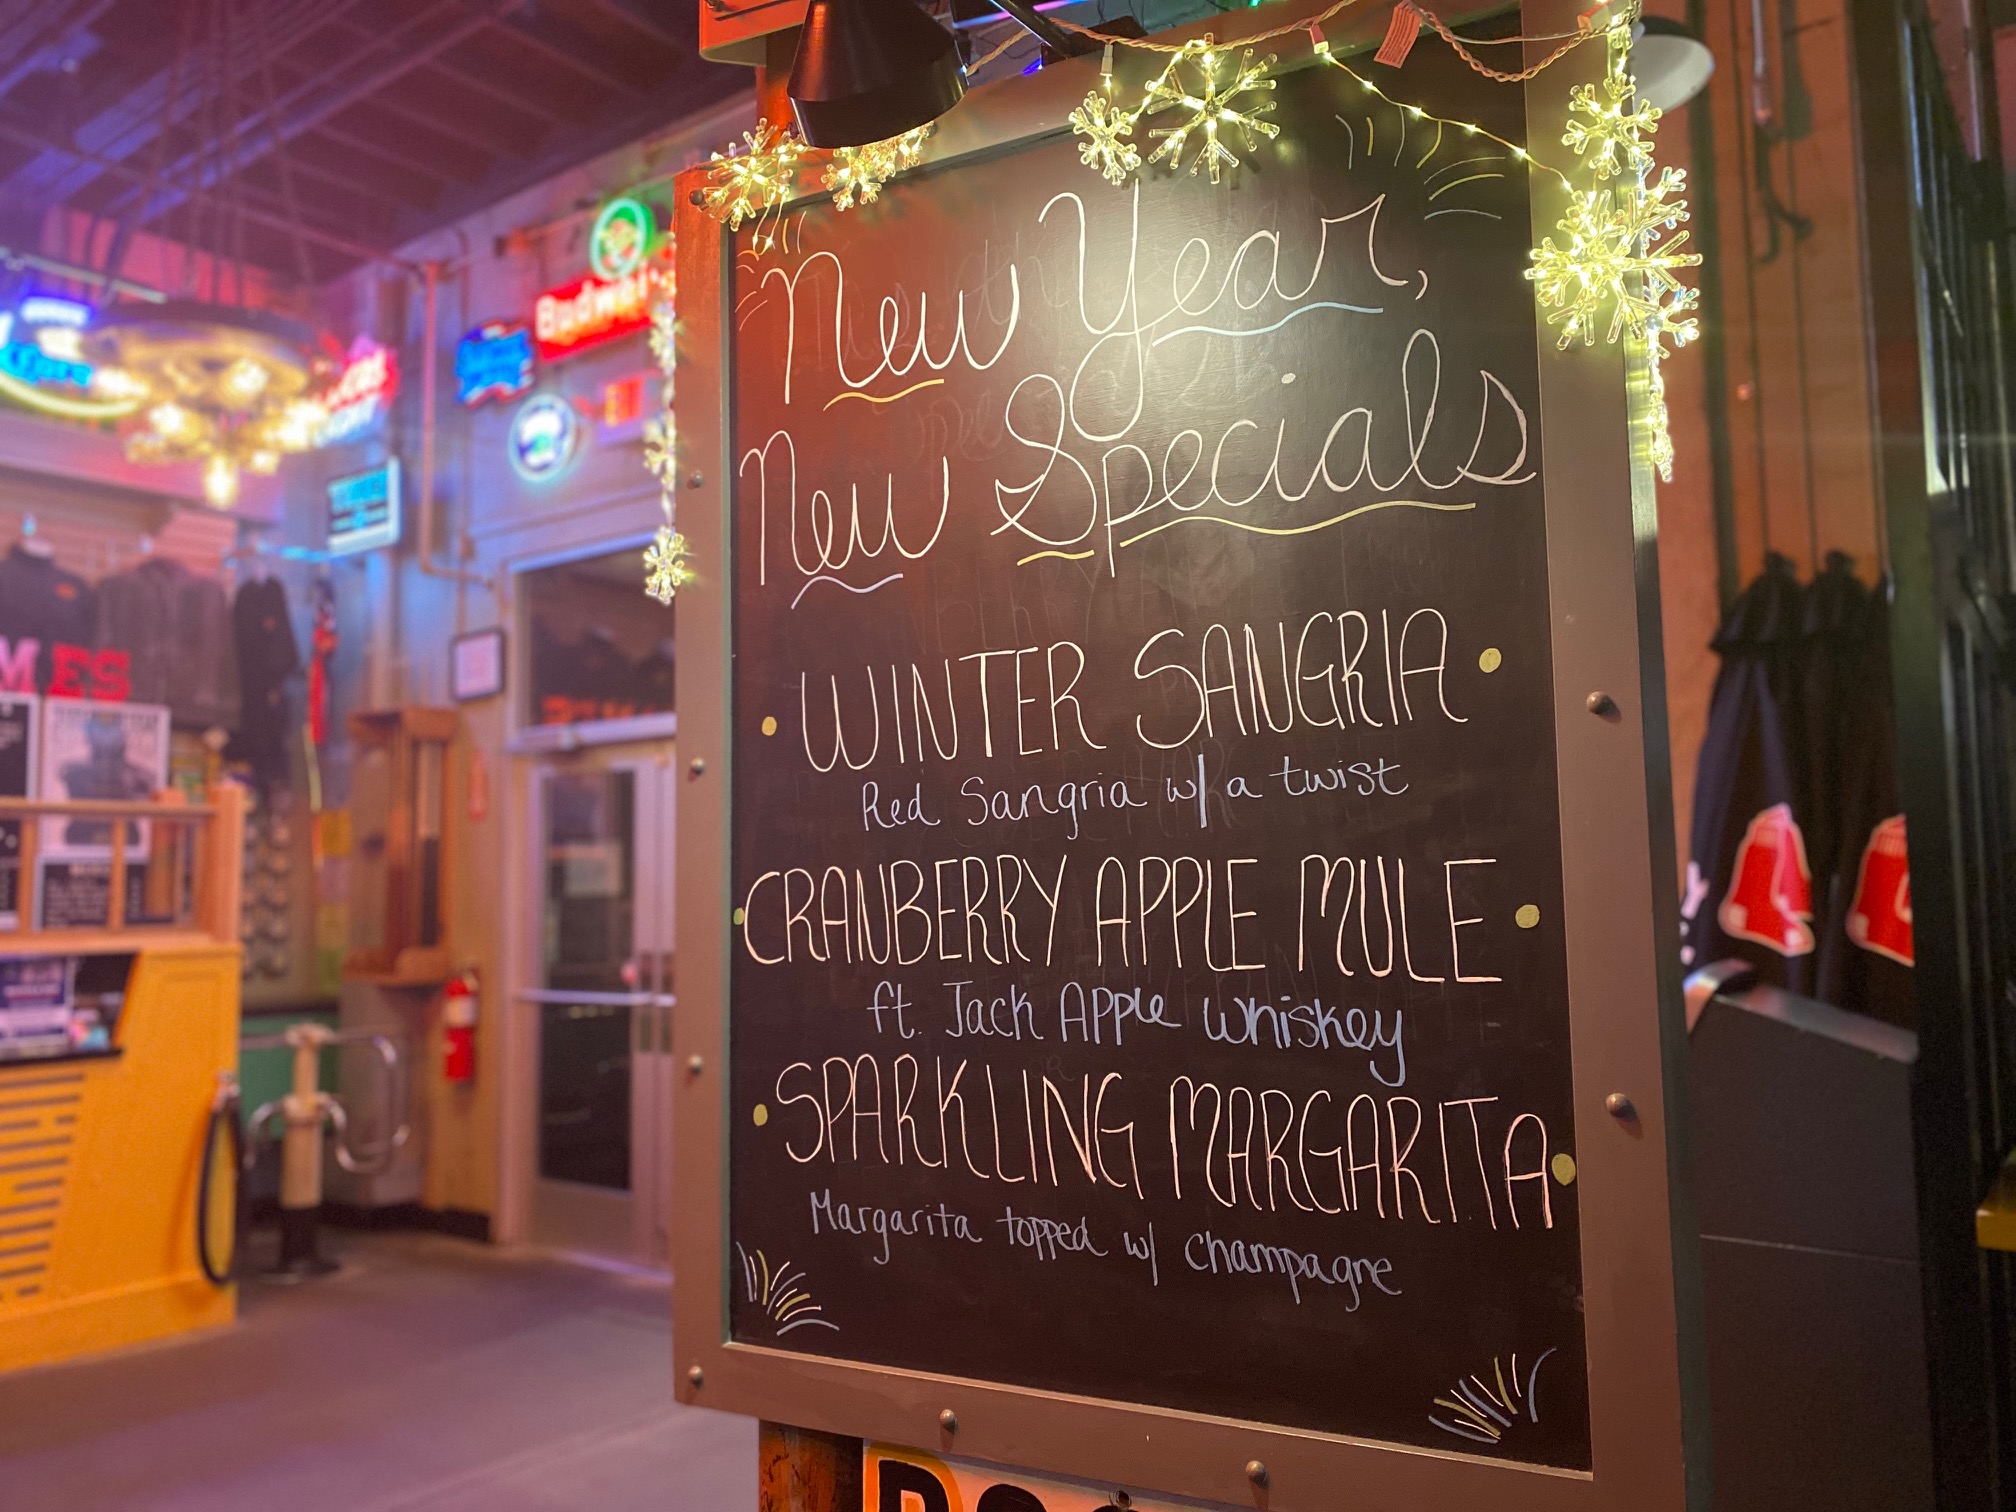 New Year,
New Specials
WINTER SANGRIA
Red Sangria w/ a twist
CRANBERRY APPLE MULE
ft. Jack Apple Whiskey
SPARKLING MARGARITA
Margarita topped w/ champagne
Budwei
MES